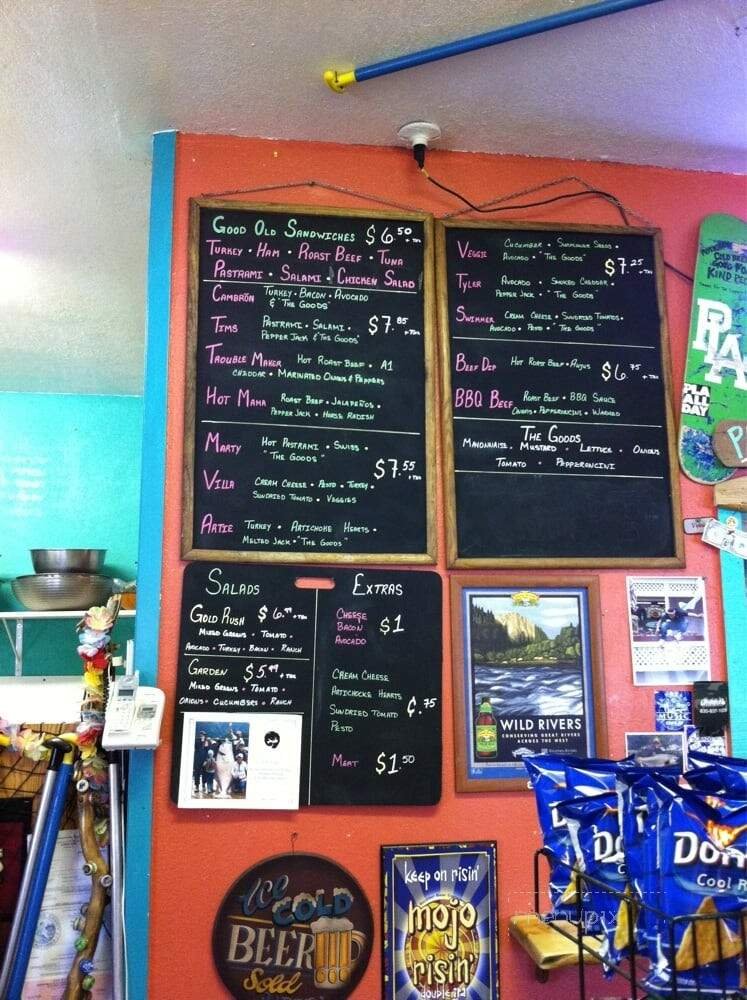 GOOD OLD SANDWICHES $6.50 + TAX
TURKEY • HAM • ROAST BEEF • TUNA
PASTRAMI • SALAMI • CHICKEN SALAD
CAMBRÓN TURKEY • BACON • AVOCADO
& "THE GOODS"
TIMS PASTRAMI • SALAMI • $7.85 + TAX
PEPPER JACK & "THE GOODS"
TROUBLE MAKER HOT ROAST BEEF • A1
CHEDDAR • MARINATED ONIONS & PEPPERS
HOT MAMA ROAST BEEF • JALAPEÑOS •
PEPPER JACK • HORSE RADISH
MARTY HOT PASTRAMI • SWISS •
"THE GOODS"
$7.55 + TAX
VILLA CREAM CHEESE • PESTO • TURKEY •
SUNDRIED TOMATO • VEGGIES
ARTIE TURKEY • ARTICHOKE HEARTS •
MELTED JACK • "THE GOODS"
VEGGIE CUCUMBER • SUNFLOWER SEEDS •
AVOCADO • "THE GOODS"
$7.25 + TAX
TYLER AVOCADO • SMOKED CHEDDAR •
PEPPER JACK • "THE GOODS"
SWIMMER CREAM CHEESE • SUNDRIED TOMATOS •
AVOCADO • PESTO • "THE GOODS"
BEEF DIP HOT ROAST BEEF • AUJUS
$6.75 + TAX
BBQ BEEF ROAST BEEF • BBQ SAUCE
ONIONS • PEPPERONCINI • WARMED
THE GOODS
MAYONNAISE • MUSTARD • LETTUCE • ONIONS
TOMATO • PEPPERONCINI
SALADS
GOLD RUSH $6.99 + TAX
MIXED GREENS • TOMATO •
AVOCADO • TURKEY • BACON • RANCH
GARDEN $5.99 + TAX
MIXED GREENS • TOMATO •
ONIONS • CUCUMBERS • RANCH
EXTRAS
CHEESE
BACON $1
AVOCADO
CREAM CHEESE
ARTICHOKE HEARTS
SUNDRIED TOMATO ¢.75
PESTO
MEAT $1.50
WILD RIVERS
CONSERVING GREAT RIVERS
ACROSS THE WEST
KIND
PLA
PLA
ALL
DAY
MUSIC
Ice
COLD
BEER
Sold
KEEP ON RISIN'
mojo
risin'
double ipa
Dori
Cool R
menupix